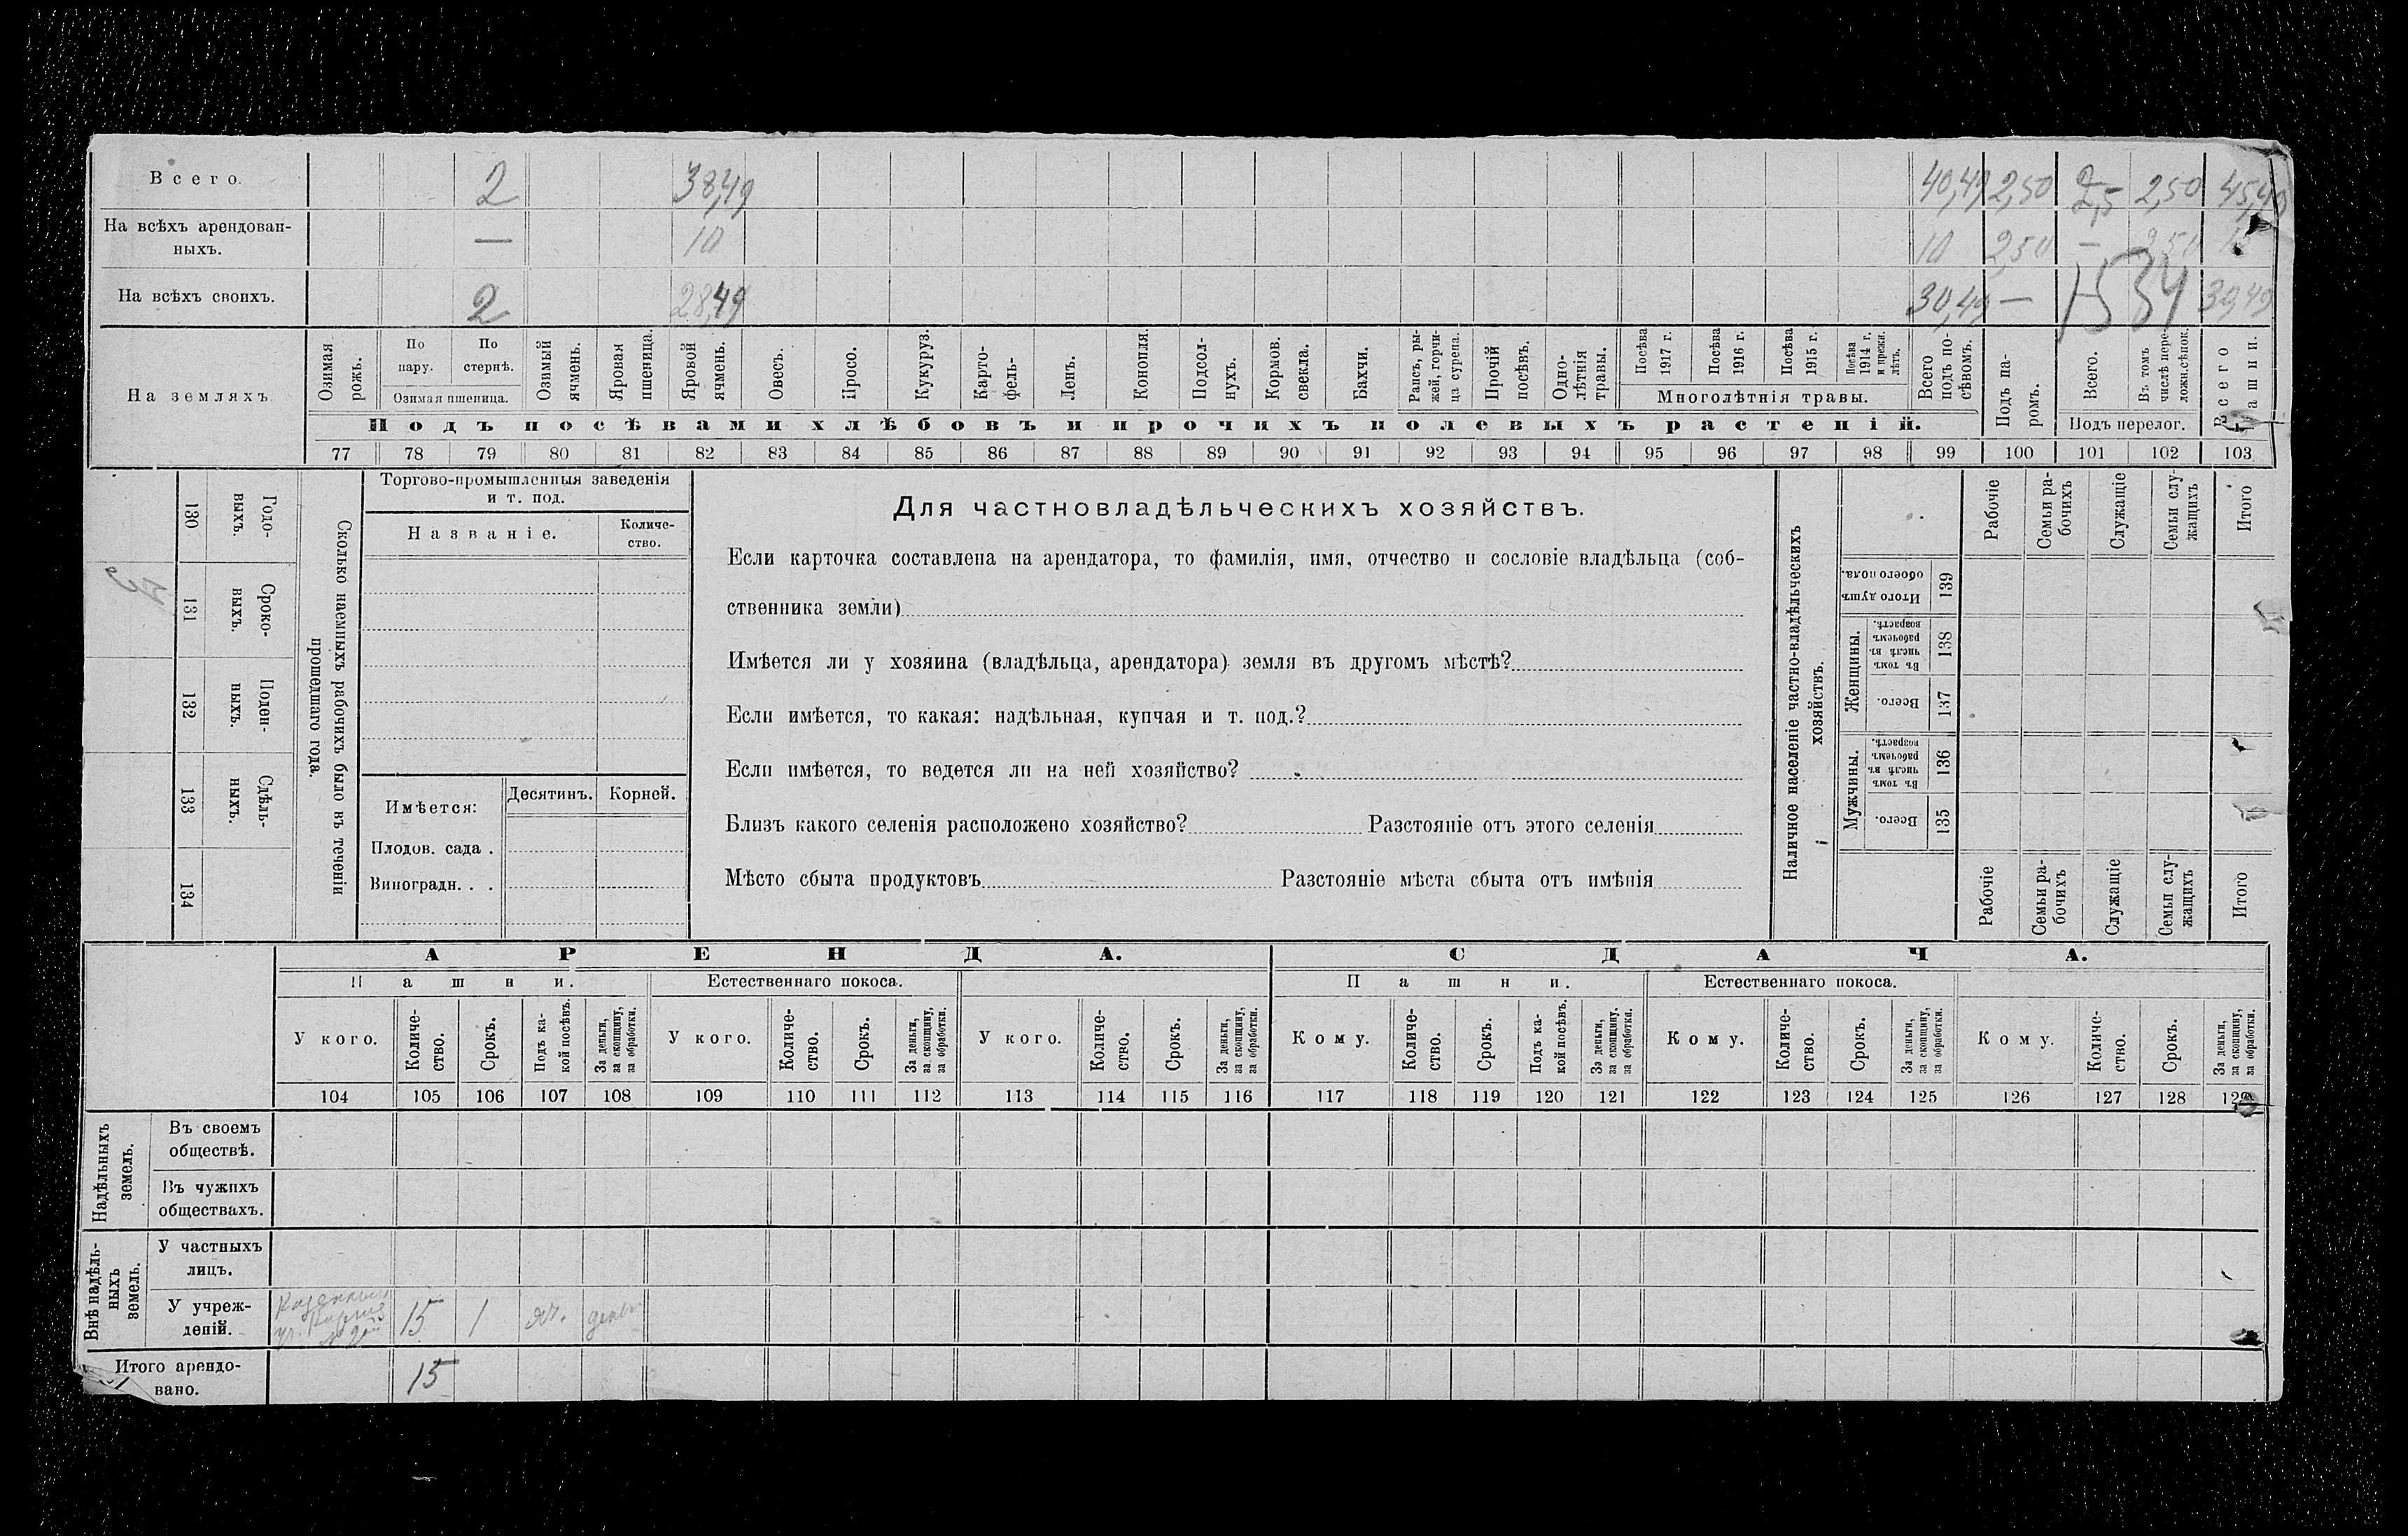 Всего. 2 38,49 40,49 2,50 2,5 2,50 45,49
На всѣхъ арендован-
ныхъ. — 10 10 2,50 — 2,50
На всѣхъ своихъ. 2 28,49 30,49 —
1534
На земляхъ
Озимая рожь.
По пару.
По стернѣ.
Озимая пшеница.
Озимый ячмень.
Яровая пшеница.
Яровой ячмень.
Овесъ.
Просо.
Кукуруз.
Карто-фель-
Ленъ.
Конопля.
Подсол-нухъ.
Кормов. свекла.
Бахчи.
Рапсъ, ры-жей, горчи-ца сурепа.
Прочій посѣвъ.
Одно-лѣтнія травы.
Посѣва 1917 г.
Посѣва 1916 г.
Посѣва 1915 г.
Посѣва 1914 г. и прежн. лѣтъ.
Многолѣтнія травы.
Всего подъ по-сѣвомъ.
Подъ па-ромъ.
Всего.
Въ томъ числѣ пере-ложн.сѣнок.
Подъ перелог.
Всего пашни.
Подъ посѣвами хлѣбовъ и прочихъ полевыхъ растеній.
77 78 79 80 81 82 83 84 85 86 87 88 89 90 91 92 93 94 95 96 97 98 99 100 101 102 103
130 Годо-выхъ.
131 Сроко-выхъ.
132 Поден-ныхъ.
133 Сдѣль-ныхъ.
134
Сколько наемныхъ рабочихъ было въ теченіи
прошедшаго года.
Торгово-промышленныя заведенія
и т. под.
Названіе. Количе-ство.
Имѣется: Десятинъ. Корней.
Плодов. сада .
Виноградн. . .
Для частновладѣльческихъ хозяйствъ.
Если карточка составлена на арендатора, то фамилія, имя, отчество и сословіе владѣльца (соб-
ственника земли)
Имѣется ли у хозяина (владѣльца, арендатора) земля въ другомъ мѣстѣ?
Если имѣется, то какая: надѣльная, купчая и т. под.?
Если имѣется, то ведется ли на ней хозяйство?
Близъ какого селенія расположено хозяйство? Разстояніе отъ этого селенія
Мѣсто сбыта продуктовъ Разстояніе мѣста сбыта отъ имѣнія
Наличное населеніе частно-владѣльческихъ
хозяйствъ.
Рабочіе
Семьи ра-бочихъ
Служащіе
Семьи слу-жащихъ
Итого
Итого душъ обоего пола. 139
Женщины.
Въ томъ числѣ въ рабочемъ возрастѣ. 138
Всего. 137
Мужчины.
Въ томъ числѣ въ рабочемъ возрастѣ. 136
Всего. 135
Рабочіе
Семьи ра-бочихъ
Служащіе
Семьи слу-жащихъ
Итого
АРЕНДА. СДАЧА.
Пашни. Естественнаго покоса. Пашни. Естественнаго покоса.
У кого.
Количе-ство.
Срокъ.
Подъ ка-кой посѣвъ.
За деньги, за скопщину, за обработки.
У кого.
Количе-ство.
Срокъ.
За деньги, за скопщину, за обработки.
У кого.
Количе-ство.
Срокъ.
За деньги, за скопщину, за обработки.
Кому.
Количе-ство.
Срокъ.
Подъ ка-кой посѣвъ.
За деньги, за скопщину, за обработки.
Кому.
Количе-ство.
Срокъ.
За деньги, за скопщину, за обработки.
Кому.
Количе-ство.
Срокъ.
За деньги, за скопщину, за обработки.
104 105 106 107 108 109 110 111 112 113 114 115 116 117 118 119 120 121 122 123 124 125 126 127 128 129
Надѣльныхъ земель.
Въ своемъ
обществѣ.
Въ чужихъ
обществахъ.
Внѣ надѣль-ныхъ земель.
У частныхъ
лицъ.
У учреж-
деній. 15 1 яч.
Итого арендо-
вано. 15